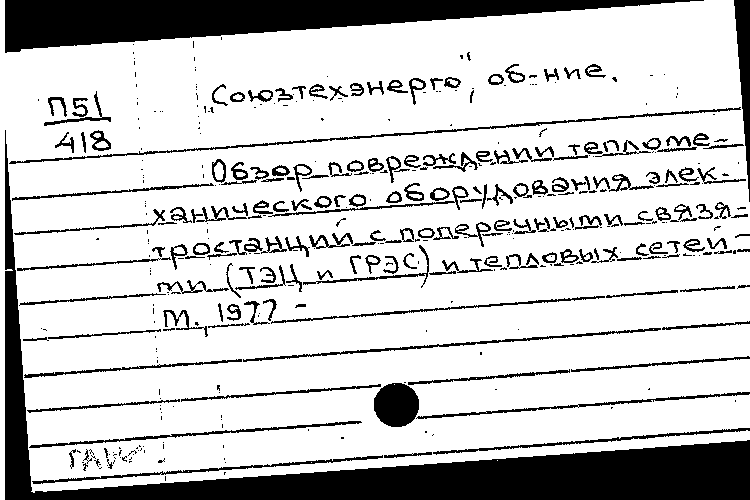 П51
418
„Союзтехэнерго", об-ние.
Обзор повреждений тепломе-
ханического оборудования элек-
тростанций с поперечными связя-
ми (ТЭЦ и ГРЭС) и тепловых сетей –
М., 1977 –